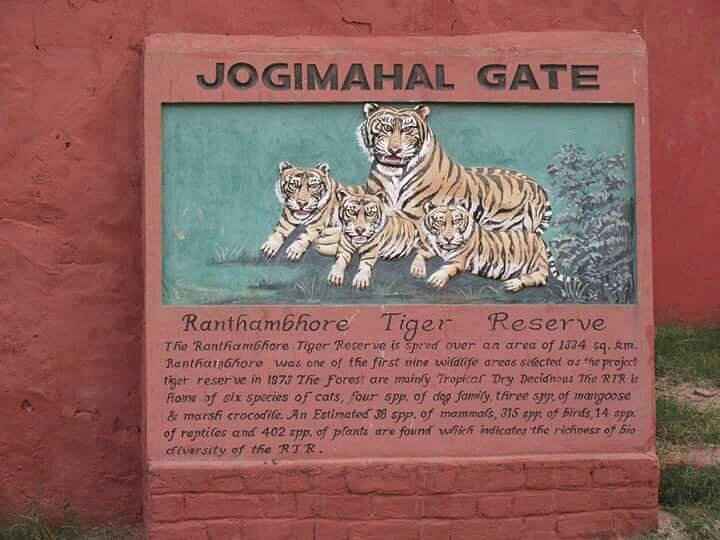 JOGIMAHAL GATE
Ranthambhore Tiger Reserve
The Ranthambhore Tiger Reserve is spred over an area of 1334 sq. km.
Ranthambhore was one of the first nine wildlife areas selected as the project
tiger reserve in 1973 The Forest are mainly Tropical Dry Decidnous The RTR is
home of six species of cats, four spp. of dog family, three spp. of mangoose
& marsh crocodile. An Estimated 38 spp. of mammals, 315 spp. of birds, 14 spp.
of reptiles and 402 spp. of plants are found which indicates the richness of bio
diversity of the R T R .